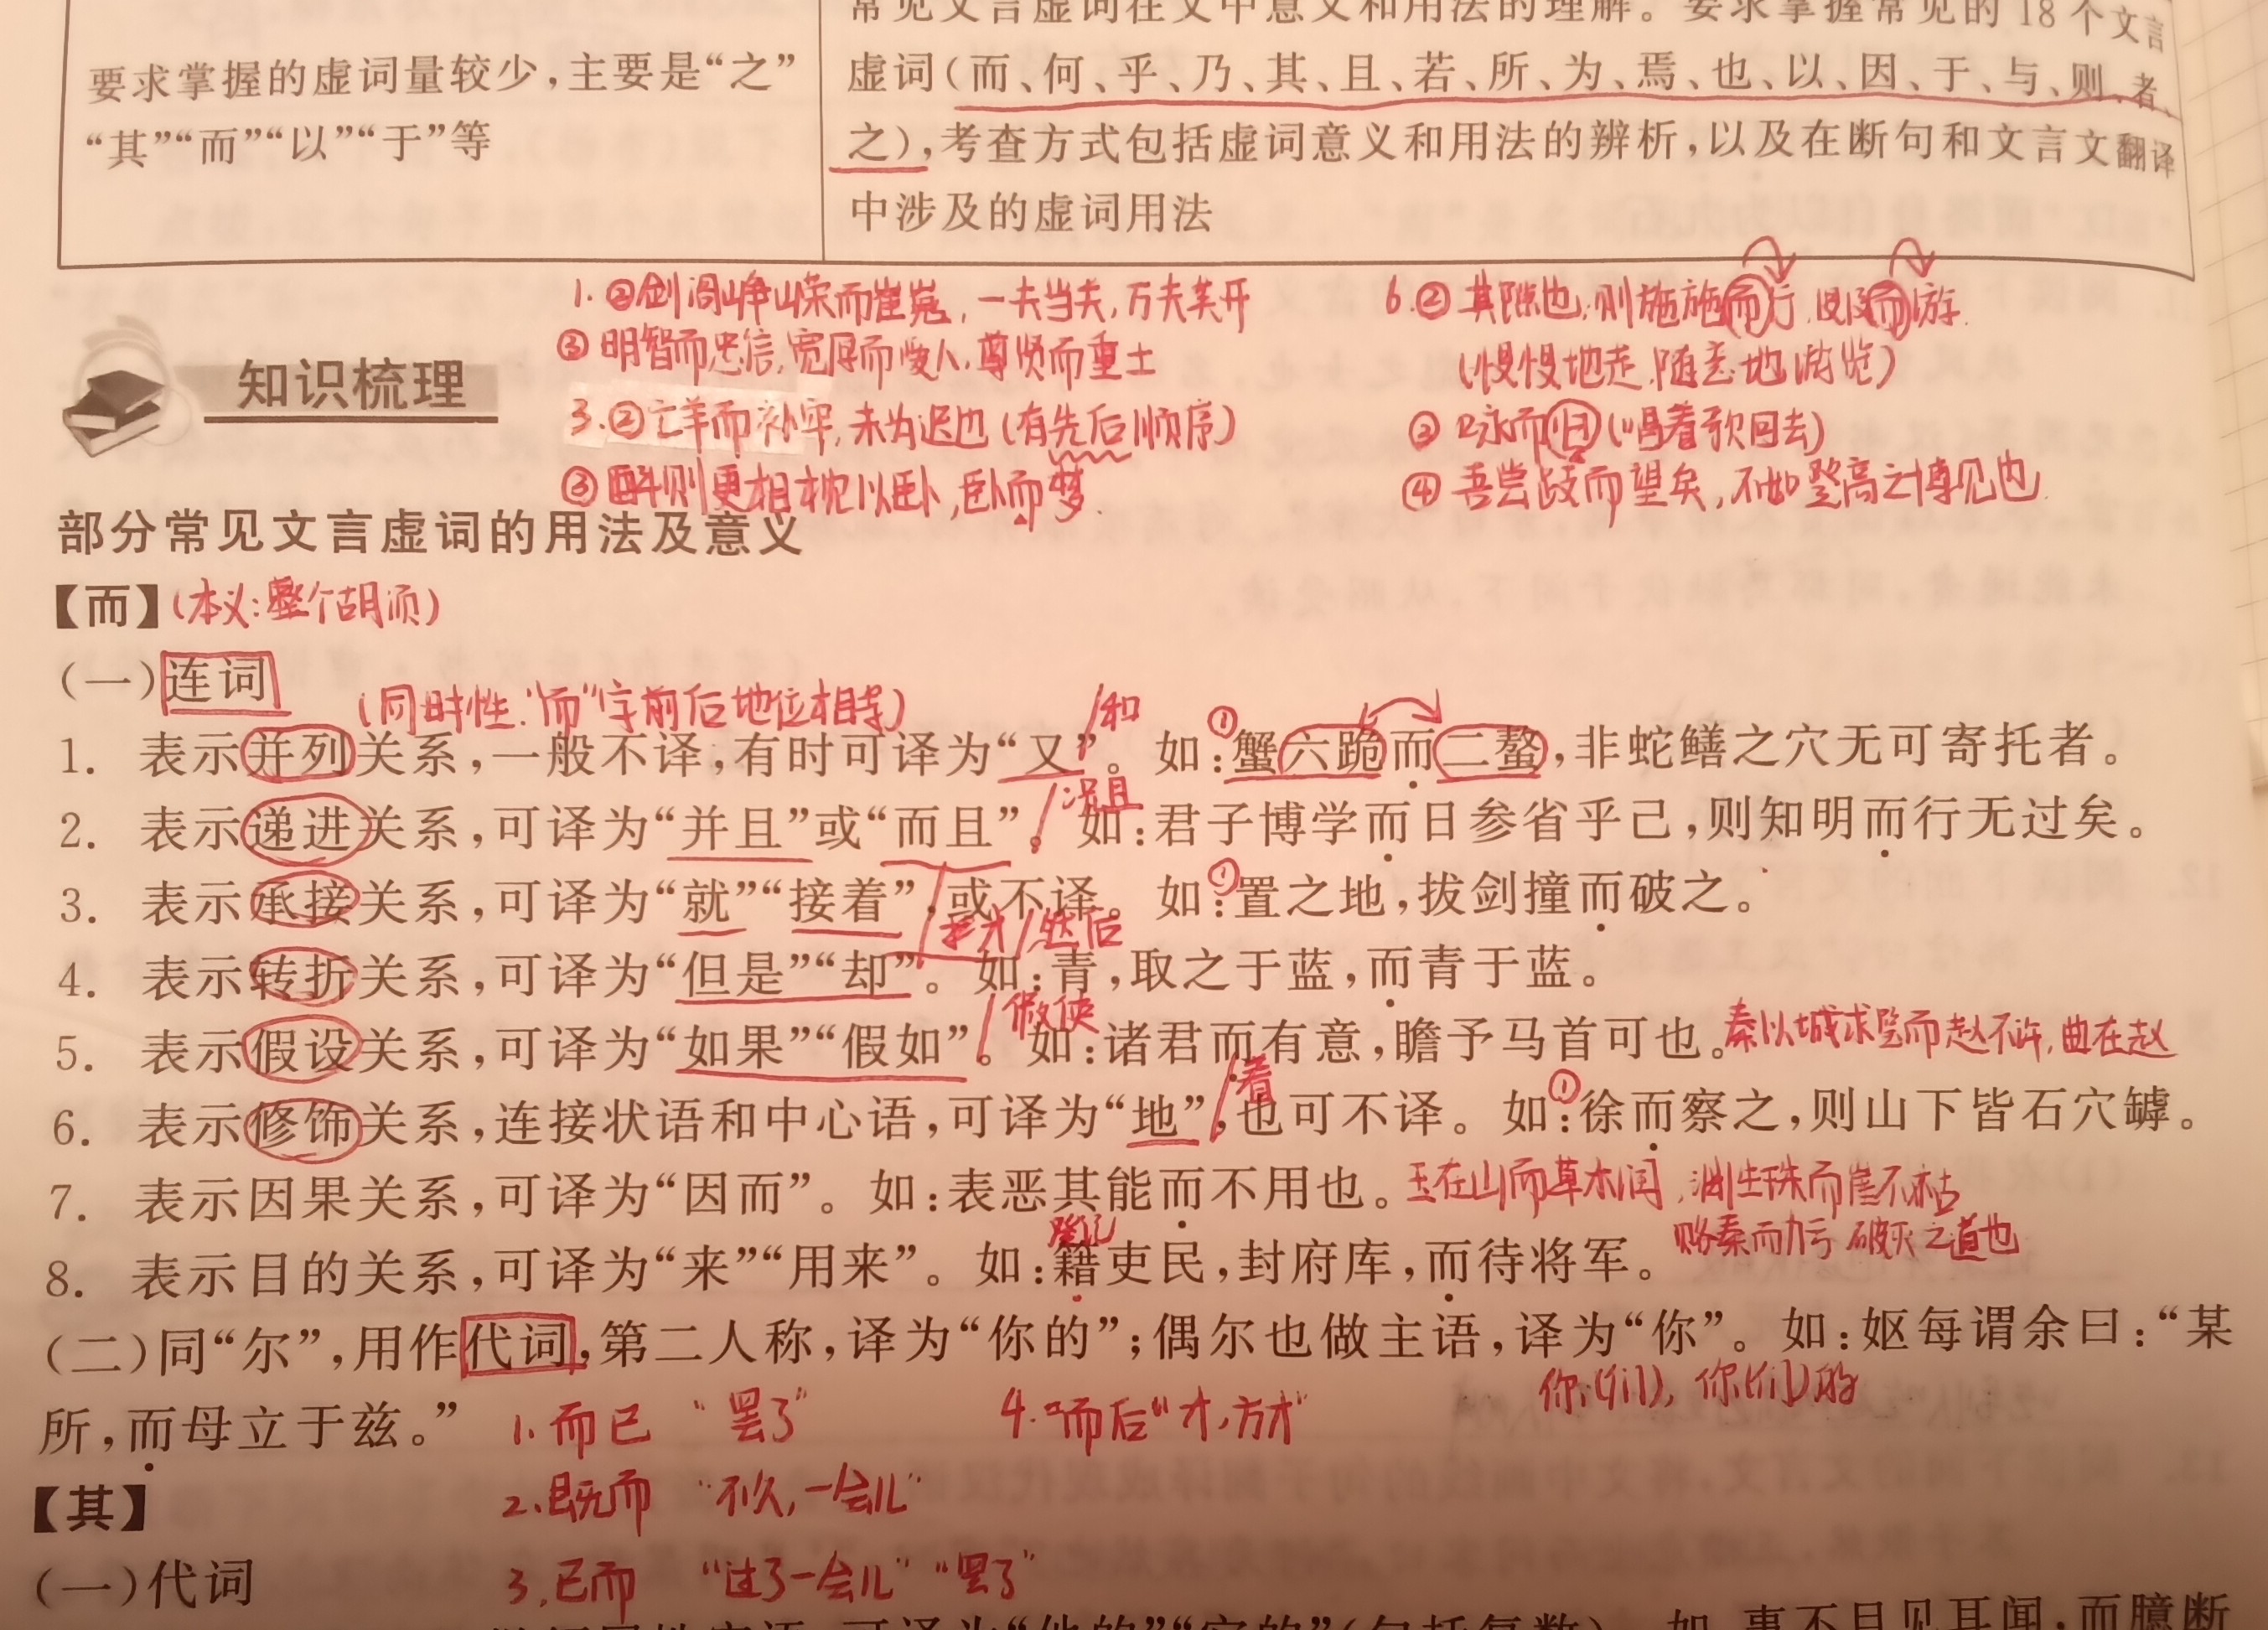 常见文言虚词在文中意义和用法的理解。要求掌握常见的 18 个文言
要求掌握的虚词量较少,主要是“之”
“其”“而”“以”“于”等
虚词(而、何、乎、乃、其、且、若、所、为、焉、也、以、因、于、与、则、者、
之),考查方式包括虚词意义和用法的辨析,以及在断句和文言文翻译
中涉及的虚词用法
1.②剑阁峥嵘而崔嵬,一夫当关,万夫莫开
③明智而忠信,宽厚而爱人,尊贤而重士
3.②亡羊而补牢,未为迟也(有先后顺序)
③醉则更相枕以卧,卧而梦.
6.② 其隙也,则施施而行,漫漫而游.
(慢慢地走,随意地游览)
③ 咏而归(唱着歌回去)
④ 吾尝跂而望矣,不如登高之博见也.
知识梳理
部分常见文言虚词的用法及意义
【而】(本义:整个胡须)
(一)连词
(同时性:“而”字前后地位相等)
/和
1. 表示并列关系,一般不译,有时可译为“又”。如:①蟹六跪而二螯,非蛇鳝之穴无可寄托者。
/况且
2. 表示递进关系,可译为“并且”或“而且”。如:君子博学而日参省乎己,则知明而行无过矣。
3. 表示承接关系,可译为“就”“接着”,或不译。如:①置之地,拔剑撞而破之。
/才/然后
4. 表示转折关系,可译为“但是”“却”。如:青,取之于蓝,而青于蓝。
/假使
5. 表示假设关系,可译为“如果”“假如”。如:诸君而有意,瞻予马首可也。秦以城求璧而赵不许,曲在赵
/着
6. 表示修饰关系,连接状语和中心语,可译为“地”,也可不译。如:①徐而察之,则山下皆石穴罅。
7. 表示因果关系,可译为“因而”。如:表恶其能而不用也。玉在山而草木润,渊生珠而崖不枯
登记
赂秦而力亏 破灭之道也
8. 表示目的关系,可译为“来”“用来”。如:籍吏民,封府库,而待将军。
(二)同“尔”,用作代词,第二人称,译为“你的”;偶尔也做主语,译为“你”。如:妪每谓余曰:“某
所,而母立于兹。”
你(们),你(们)的
1.而已 “罢了”
4.“而后”“才,方才”
【其】
2.既而 “不久,一会儿”
(一)代词
3.已而 “过了一会儿”“罢了”